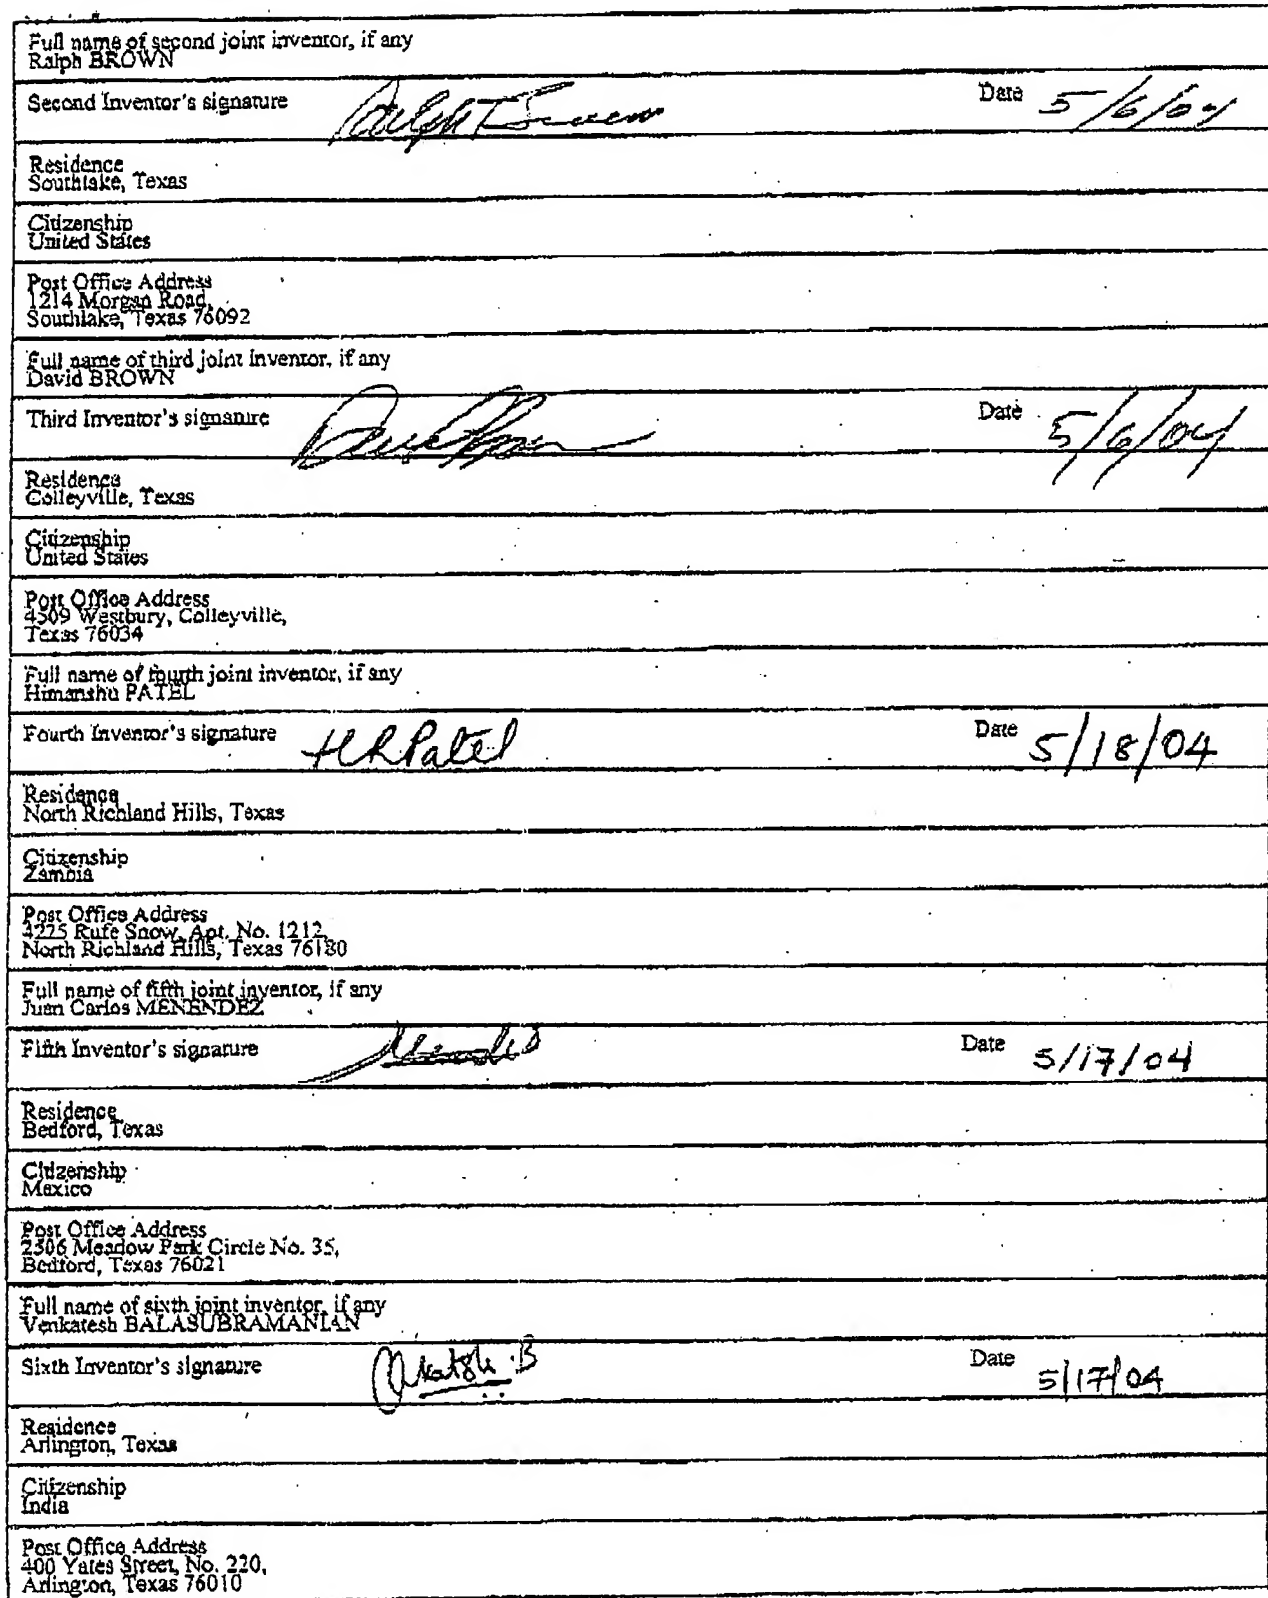 Full name of second joint inventor, if any
Ralph BROWN
Second Inventor's signature Date 5/6/04
Residence
Southlake, Texas
Citizenship
United States
Post Office Address
1214 Morgan Road,
Southlake, Texas 76092
Full name of third joint inventor, if any
David BROWN
Third Inventor's signature Date 5/6/04
Residence
Colleyville, Texas
Citizenship
United States
Post Office Address
4509 Westbury, Colleyville,
Texas 76034
Full name of fourth joint inventor, if any
Himanshu PATEL
Fourth Inventor's signature HRPatel Date 5/18/04
Residence
North Richland Hills, Texas
Citizenship
Zambia
Post Office Address
4225 Rufe Snow, Apt. No. 1212,
North Richland Hills, Texas 76180
Full name of fifth joint inventor, if any
Juan Carlos MENENDEZ
Fifth Inventor's signature Date 5/17/04
Residence
Bedford, Texas
Citizenship
Mexico
Post Office Address
2506 Meadow Park Circle No. 35,
Bedford, Texas 76021
Full name of sixth joint inventor, if any
Venkatesh BALASUBRAMANIAN
Sixth Inventor's signature Date 5/17/04
Residence
Arlington, Texas
Citizenship
India
Post Office Address
400 Yates Street, No. 220,
Arlington, Texas 76010